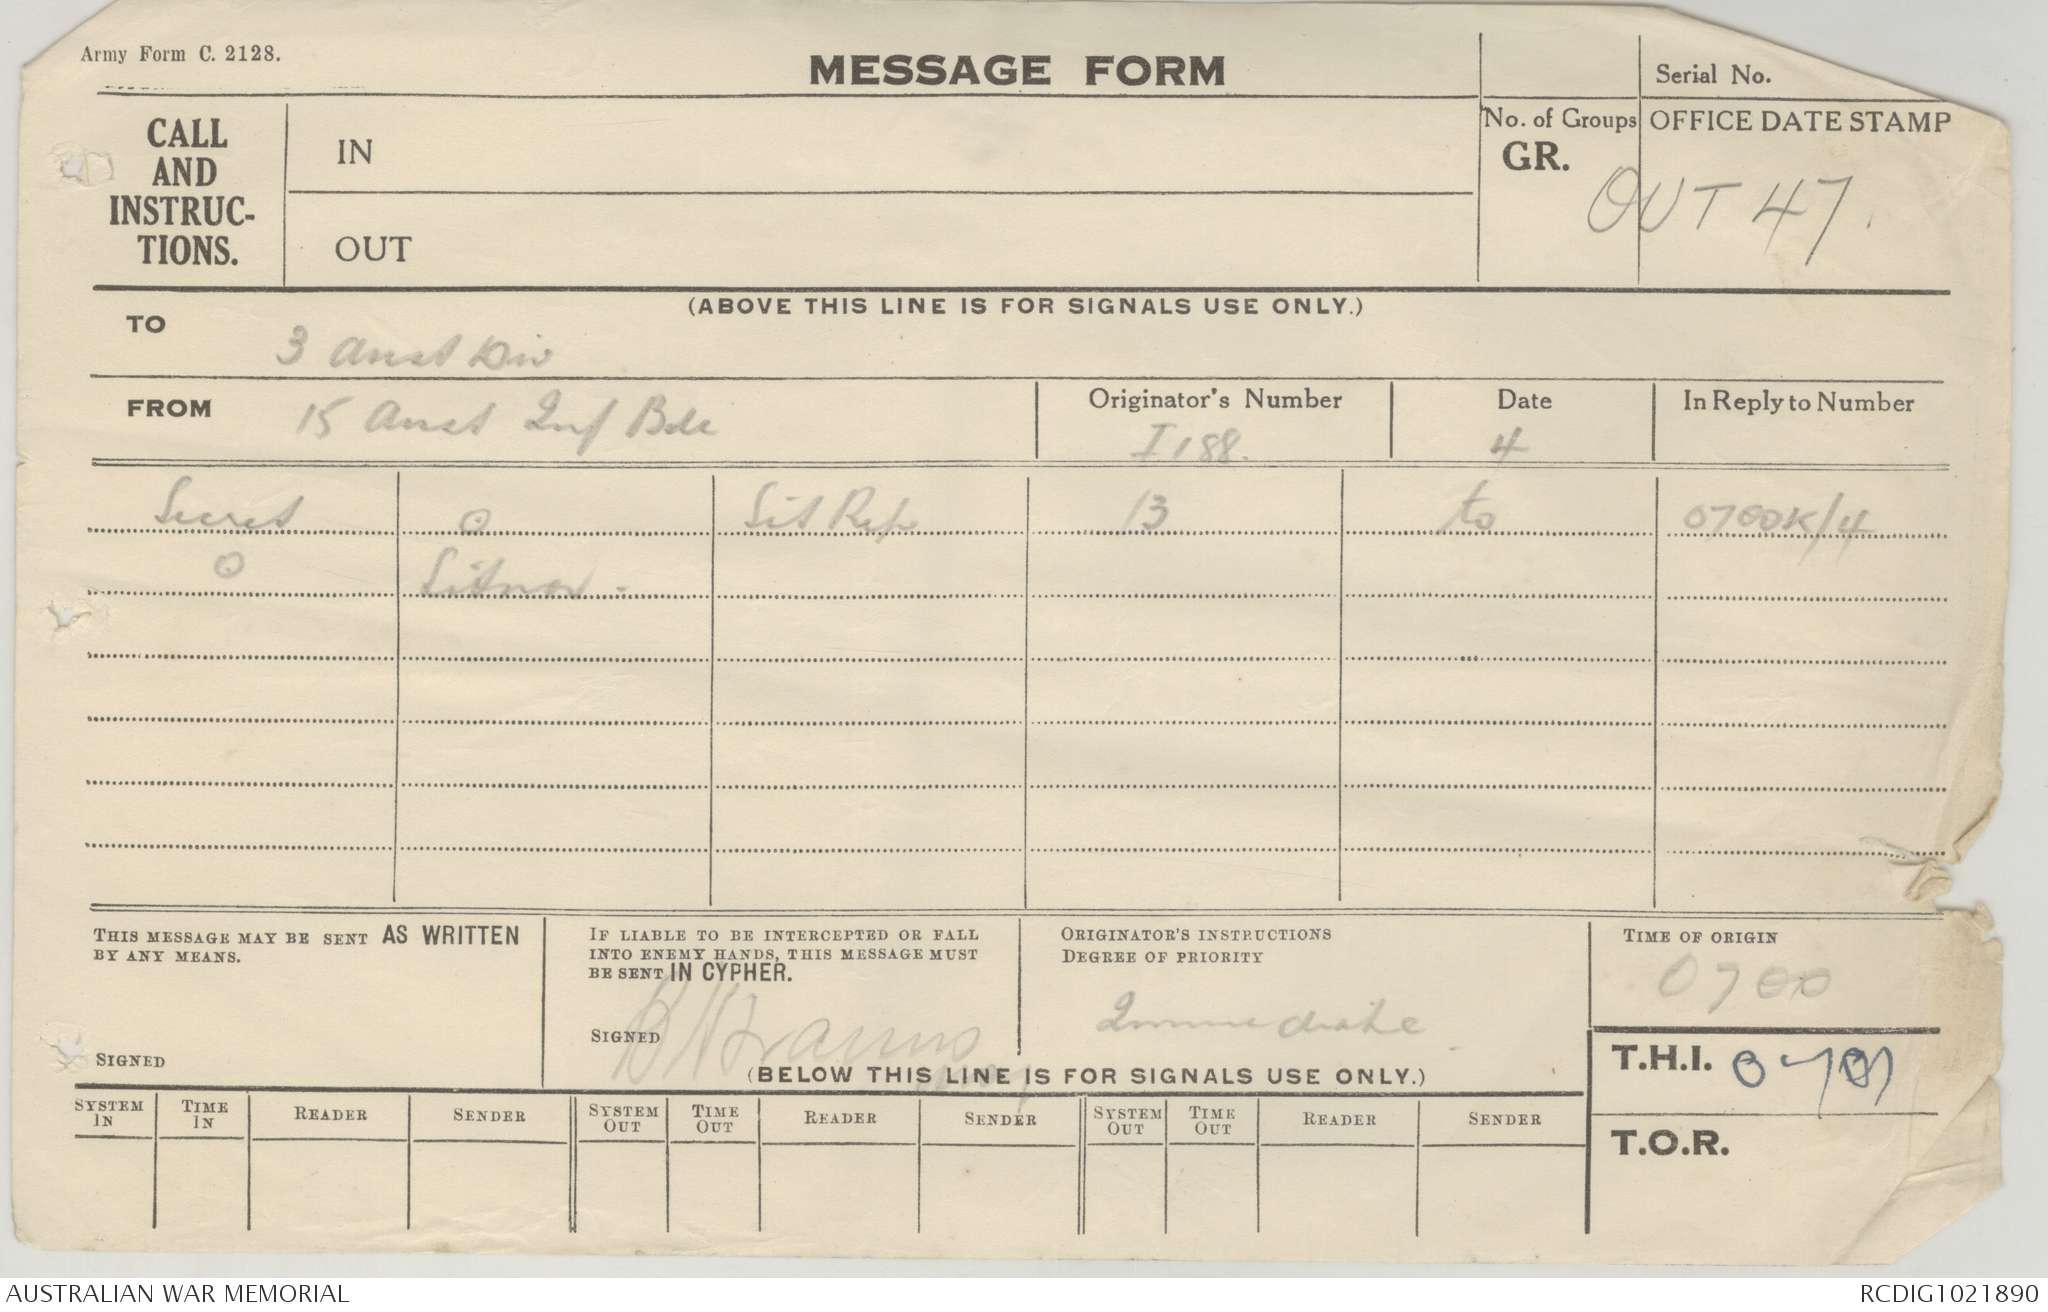 Army Form C. 2128.
MESSAGE FORM
Serial No.
CALL
AND
INSTRUC-
TIONS.
IN
OUT
No. of Groups
GR.
OFFICE DATE STAMP
OUT 47.
(ABOVE THIS LINE IS FOR SIGNALS USE ONLY.)
TO
3 Aust Div
FROM
15 Aust Inf Bde
Originator's Number
I 188.
Date
4
In Reply to Number
Secret o Sit Rep 13 to 0700K/4
o Sitnor -
THIS MESSAGE MAY BE SENT AS WRITTEN
BY ANY MEANS.
SIGNED
IF LIABLE TO BE INTERCEPTED OR FALL
INTO ENEMY HANDS, THIS MESSAGE MUST
BE SENT IN CYPHER.
SIGNED
ORIGINATOR'S INSTRUCTIONS
DEGREE OF PRIORITY
Immediate
TIME OF ORIGIN
0700
T.H.I. 0701
T.O.R.
(BELOW THIS LINE IS FOR SIGNALS USE ONLY.)
SYSTEM IN TIME IN READER SENDER SYSTEM OUT TIME OUT READER SENDER SYSTEM OUT TIME OUT READER SENDER
AUSTRALIAN WAR MEMORIAL
RCDIG1021890